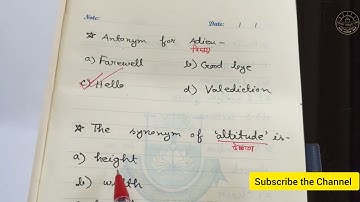 Note: Date: / /
☆ Antonym for Adieu -
विदा
a) Farewell b) Good bye
c) Hello d) Valediction
☆ The synonym of 'altitude' is -
a) height
b)
Subscribe the Channel